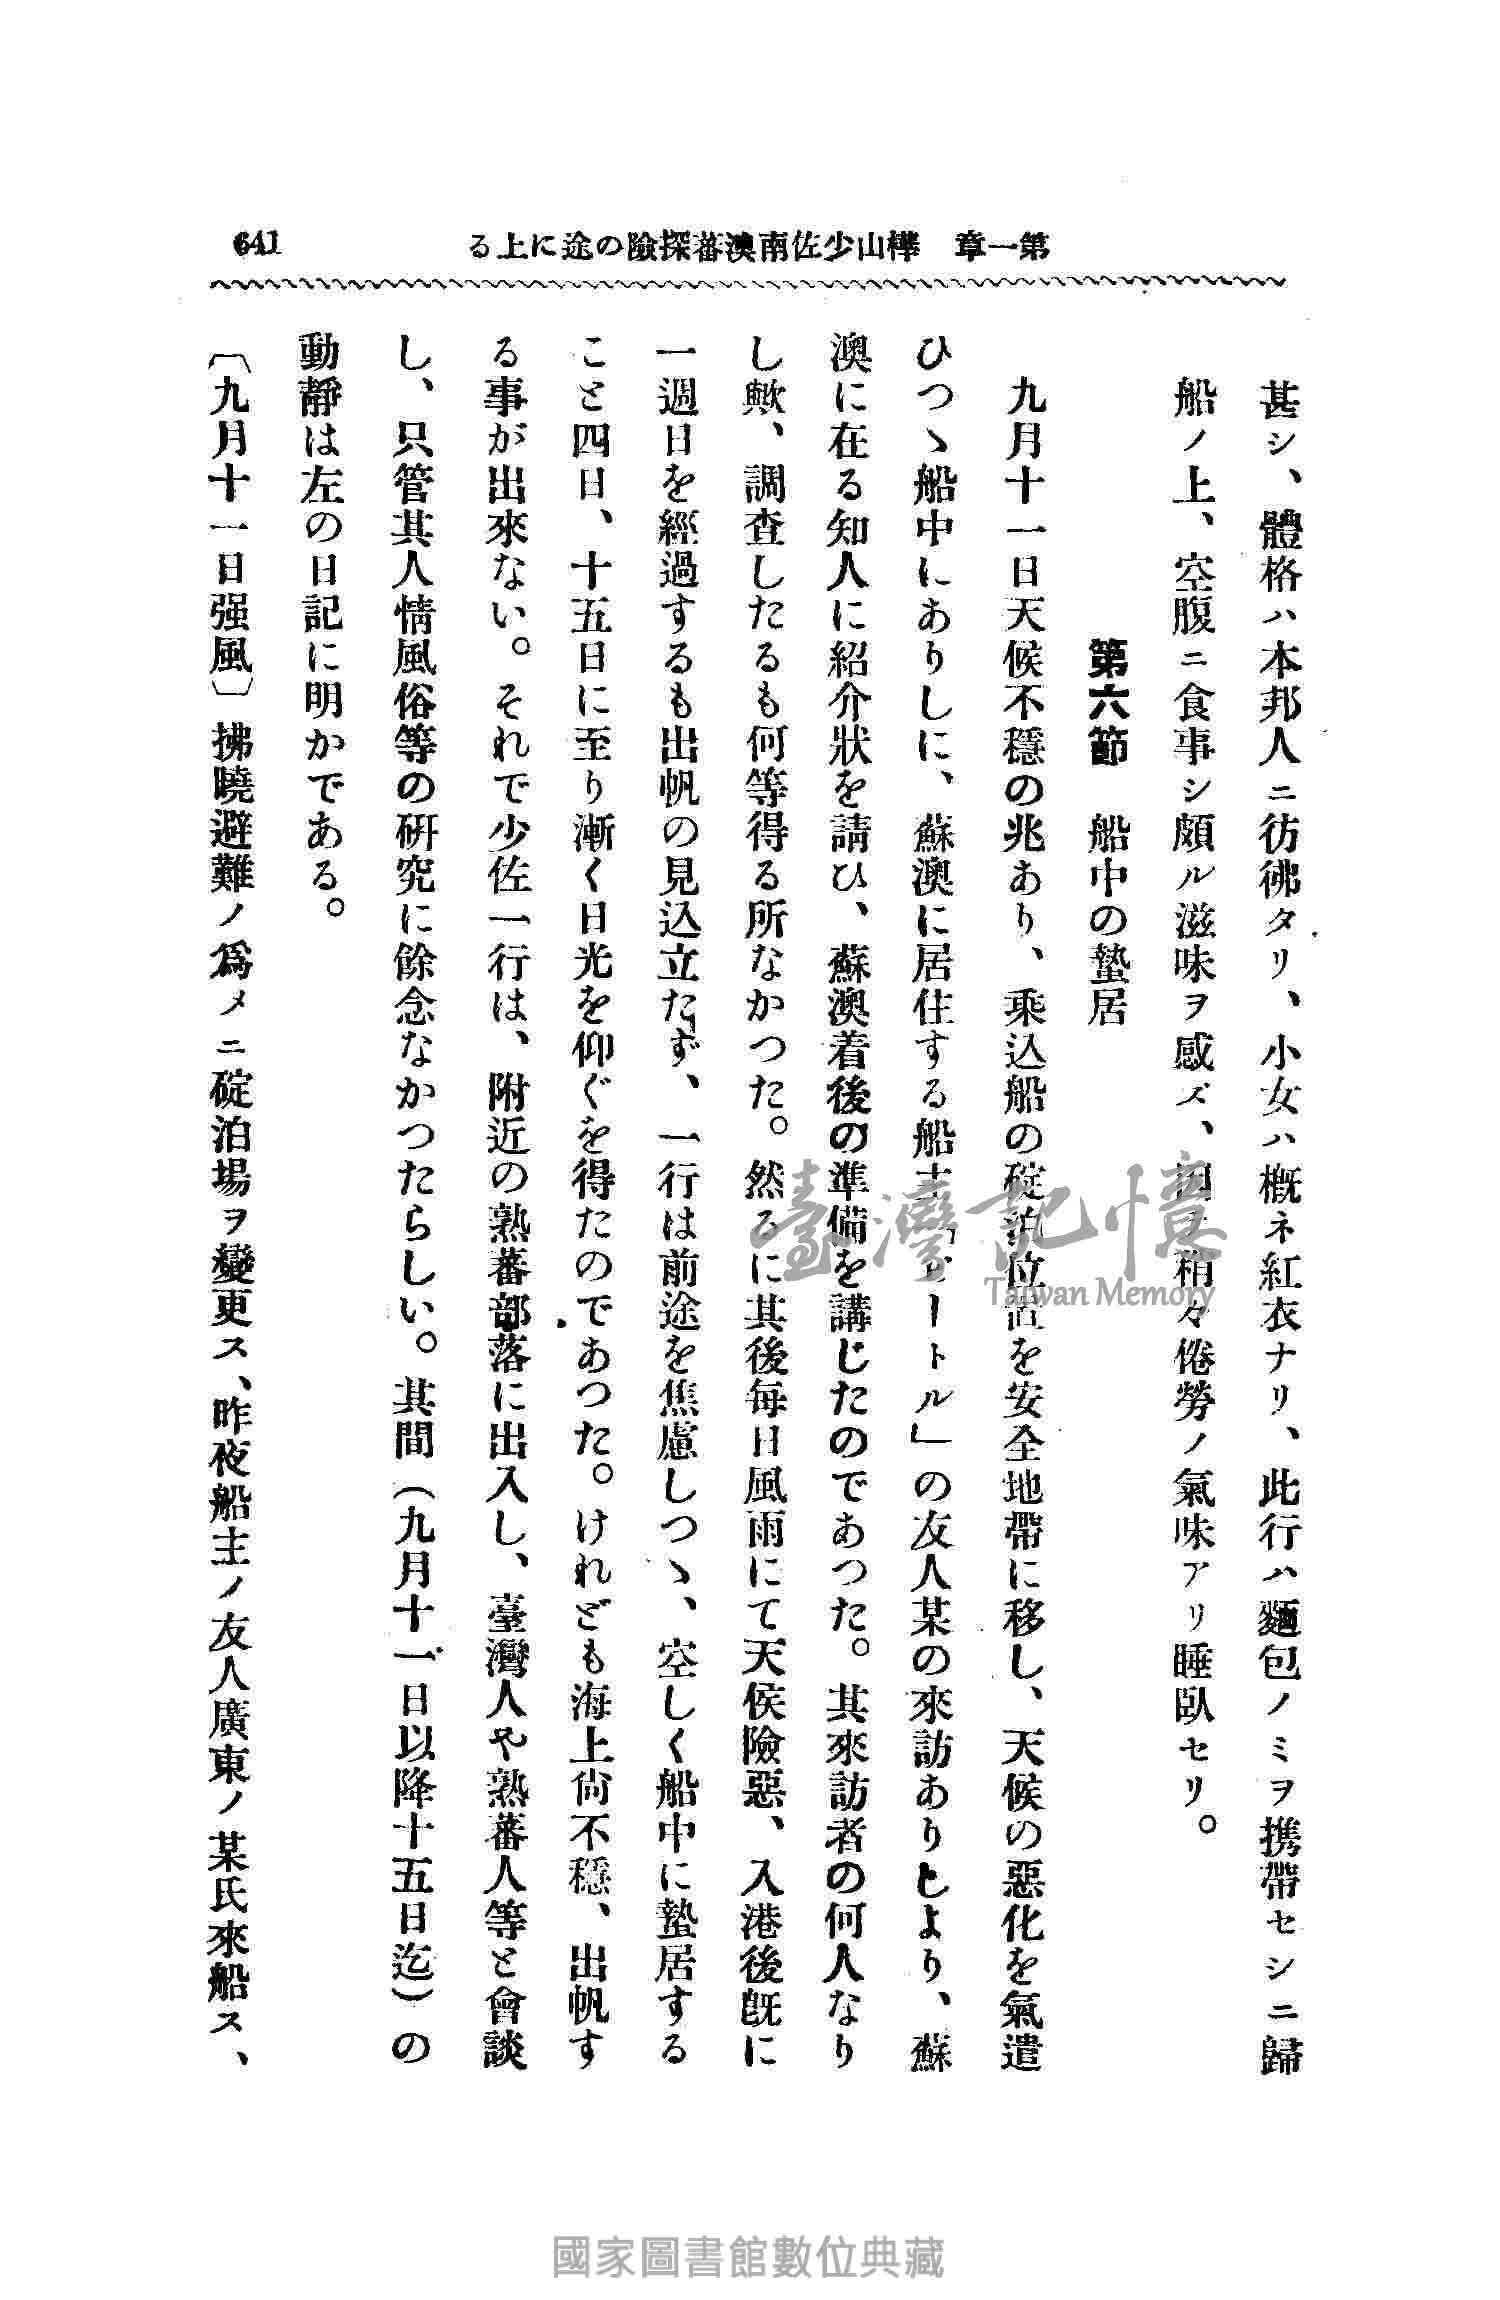 641
第一章　樺山少佐南澳蕃探險の途に上る
甚シ、體格ハ本邦人ニ彷彿タリ、小女ハ概ネ紅衣ナリ、此行ハ麵包ノミヲ携帶セシニ歸
船ノ上、空腹ニ食事シ頗ル滋味ヲ感ズ、因テ稍々倦勞ノ氣味アリ睡臥セリ。
第六節　船中の蟄居
九月十一日天候不穩の兆あり、乘込船の碇泊位置を安全地帶に移し、天候の惡化を氣遣
ひつゝ船中にありしに、蘇澳に居住する船主「ピートル」の友人某の來訪ありしより、蘇
澳に在る知人に紹介狀を請ひ、蘇澳着後の準備を講じたのであつた。其來訪者の何人なり
し歟、調査したるも何等得る所なかつた。然るに其後每日風雨にて天侯險惡、入港後既に
一週日を經過するも出帆の見込立たず、一行は前途を焦慮しつゝ、空しく船中に蟄居する
こと四日、十五日に至り漸く日光を仰ぐを得たのであつた。けれども海上尙不穩、出帆す
る事が出來ない。それで少佐一行は、附近の熟蕃部落に出入し、臺灣人や熟蕃人等と會談
し、只管其人情風俗等の硏究に餘念なかつたらしい。其間（九月十一日以降十五日迄）の
動靜は左の日記に明かである。
〔九月十一日强風〕拂曉避難ノ爲メニ碇泊場ヲ變更ス、昨夜船主ノ友人廣東ノ某氏來船ス、
臺灣記憶
Taiwan Memory
國家圖書館數位典藏